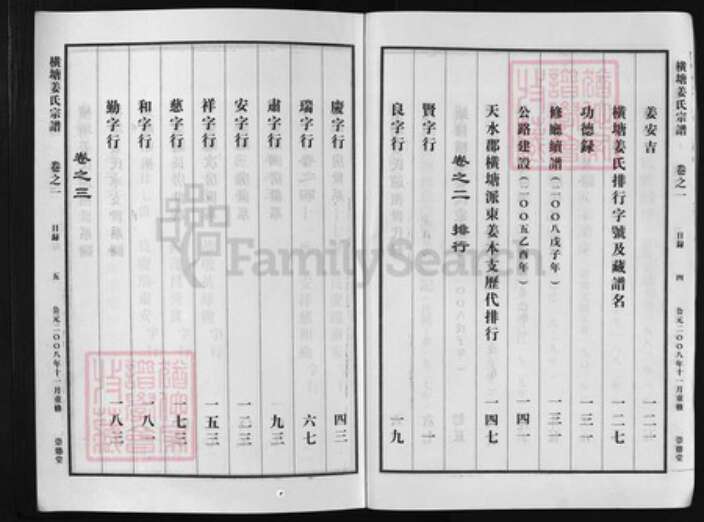 橫塘姜氏宗譜 卷之一 目錄 四 公元二00八年十一月重修 崇德堂
姜安吉 一二一
橫塘姜氏排行字號及藏譜名 一二七
功德錄 一三一
修廳續譜(二00八戊子年) 一三一
公路建設(二00五乙酉年) 一四一
天水郡橫塘派東姜本支歷代排行 一四七
卷之二 排行
賢字行 一
良字行 一九
慶字行 四三
瑞字行 六七
肅字行 九三
安字行 一二三
祥字行 一五三
慈字行 一七三
和字行 一八一
勤字行 一八三
卷之三
橫塘姜氏宗譜 卷之一 目錄 五 公元二00八年十一月重修 崇德堂
FamilySearch